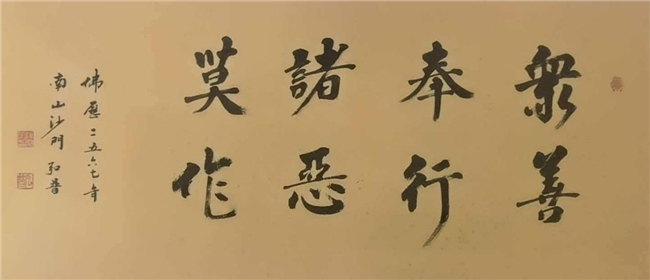 眾善
奉行
諸惡
莫作
佛曆二五六七年
南山沙門弘普